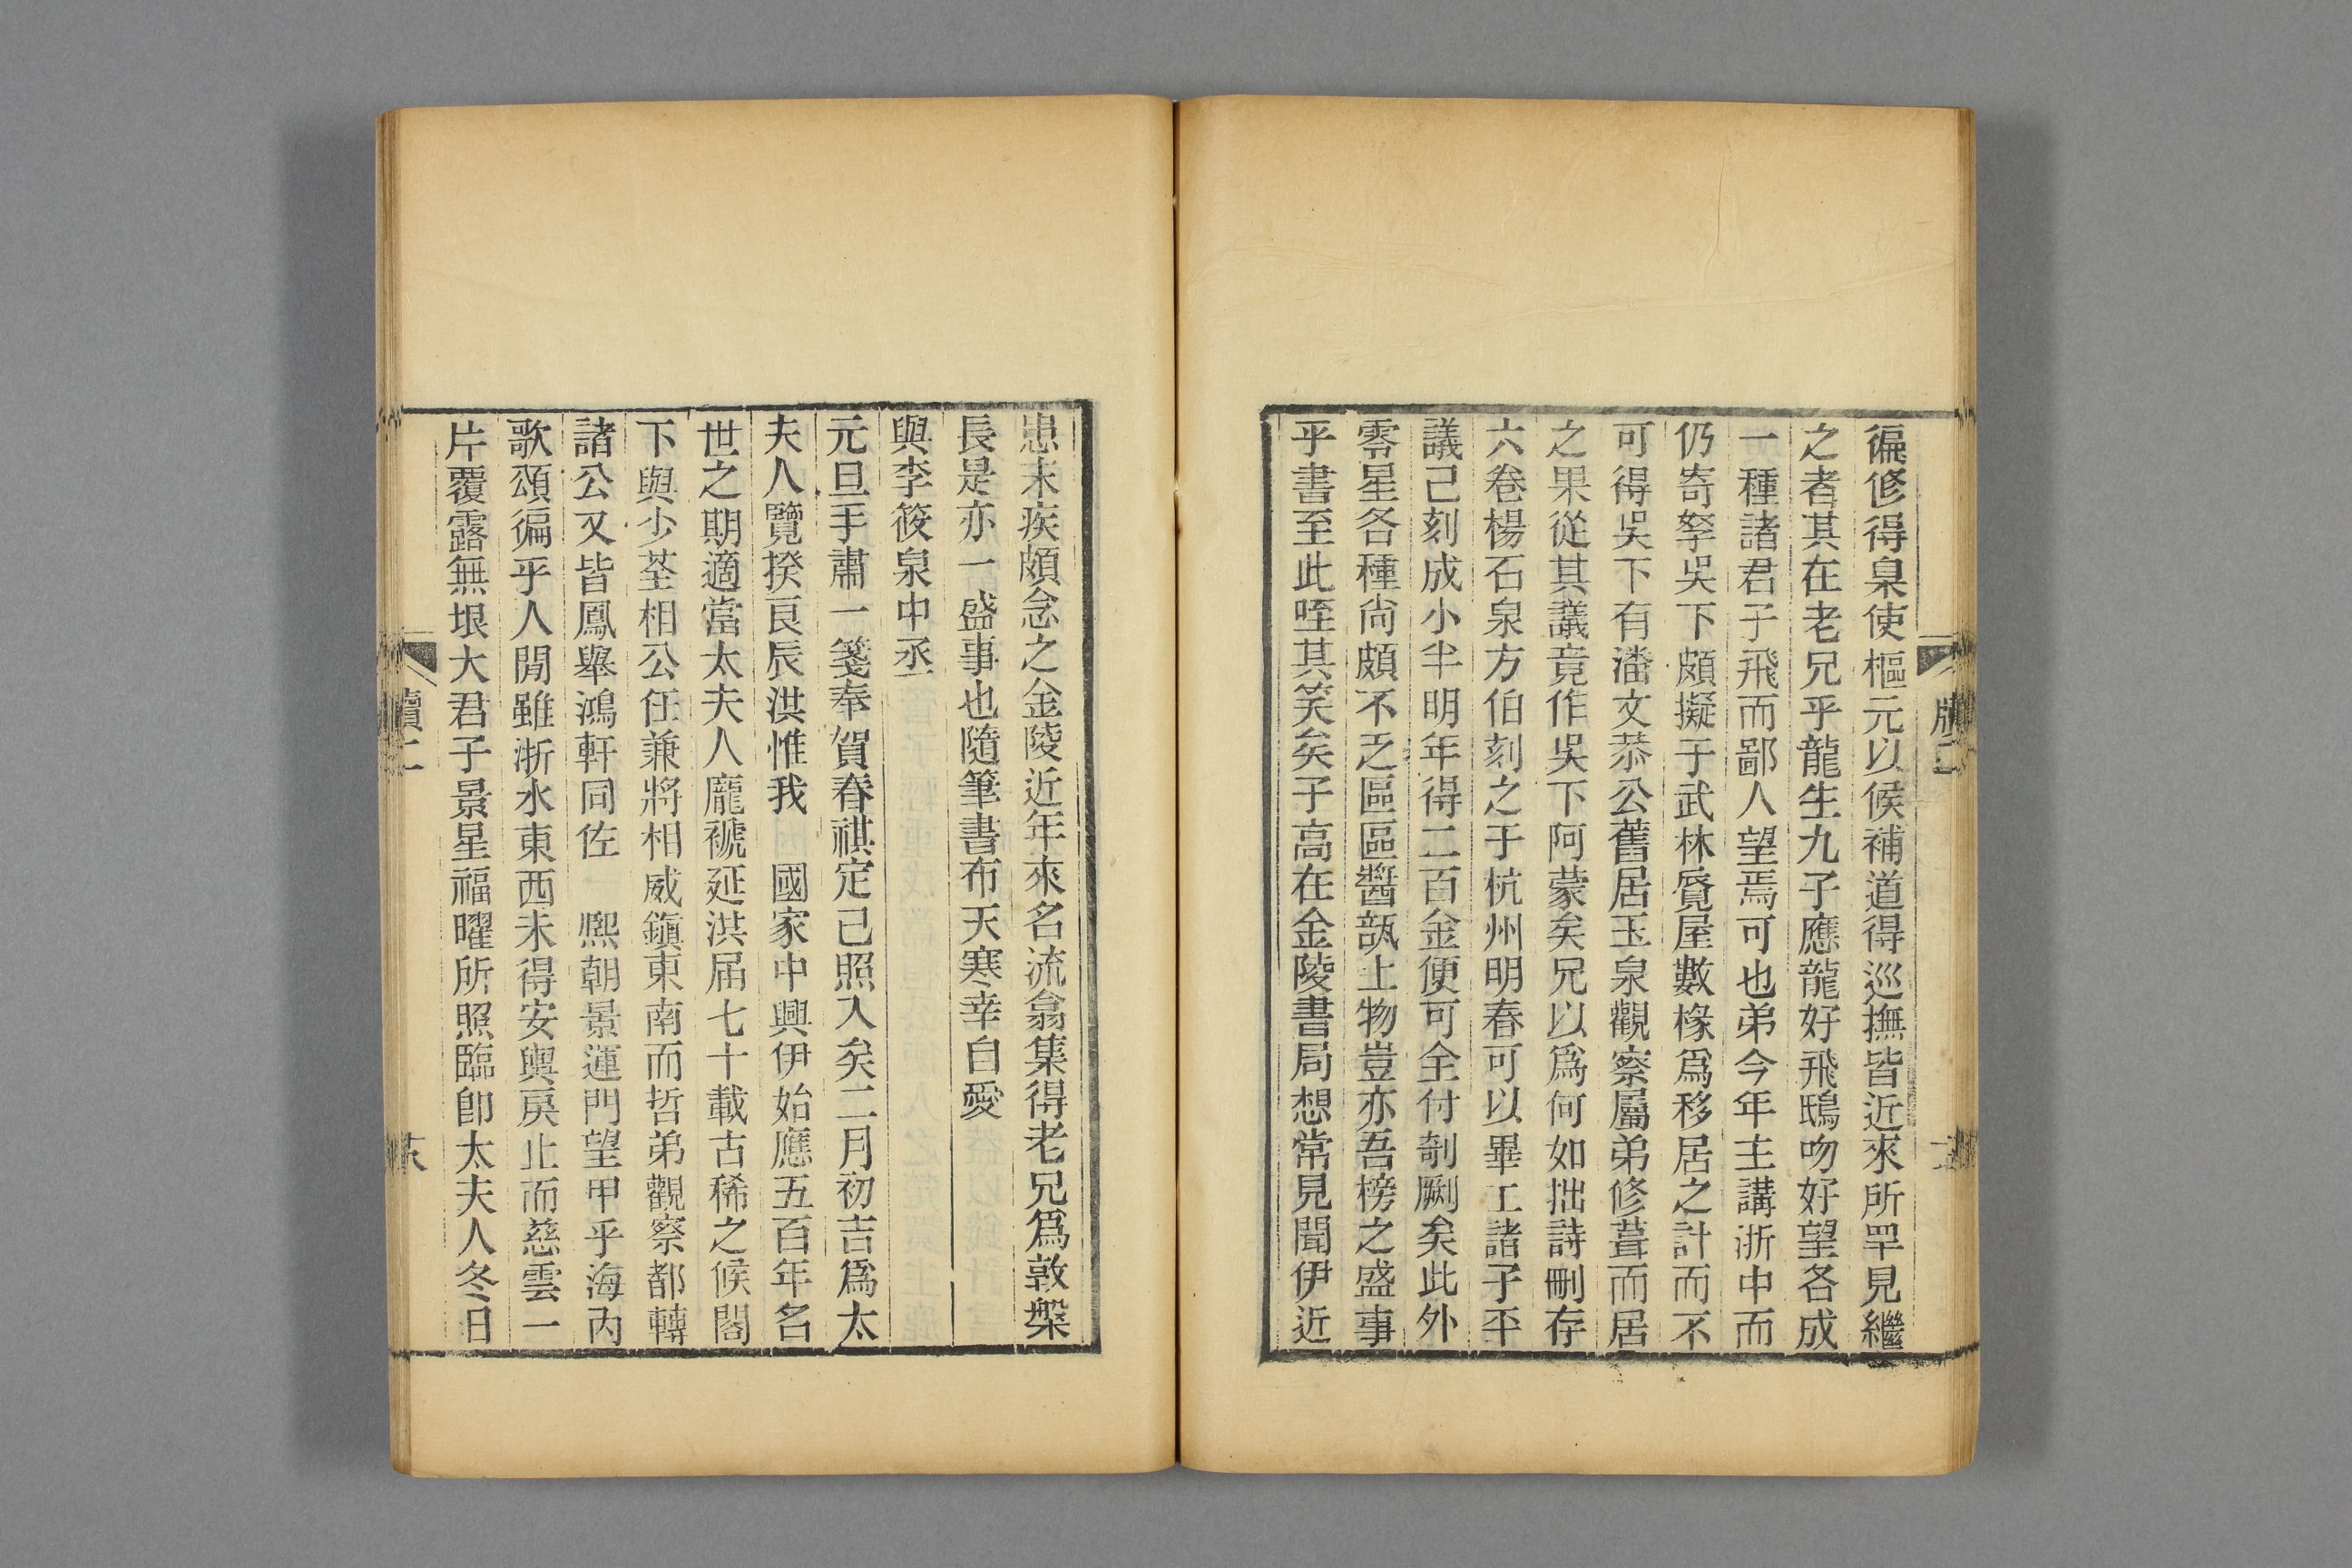 徧修得臬使樞元以候補道得巡撫皆近來所罕見繼
之者其在老兄乎龍生九子應龍好飛鴟吻好望各成
一種諸君子飛而鄙人望焉可也弟今年主講浙中而
仍寄孥吳下頗擬于武林覓屋數椽爲移居之計而不
可得吳下有潘文恭公舊居玉泉觀察屬弟修葺而居
之果從其議竟作吳下阿蒙矣兄以爲何如拙詩刪存
六卷楊石泉方伯刻之于杭州明春可以畢工諸子平
議己刻成小半明年得二百金便可全付剞劂矣此外
零星各種尙頗不乏區區醬瓿上物豈亦吾榜之盛事
乎書至此咥其笑矣子高在金陵書局想常見聞伊近
患末疾頗念之金陵近年來名流翕集得老兄爲敦槃
長是亦一盛事也隨筆書布天寒幸自愛
與李筱泉中丞
元旦手肅一箋奉賀春祺定己照入矣二月初吉爲太
夫人覽揆良辰洪惟我　國家中興伊始應五百年名
世之期適當太夫人龐禠延洪届七十載古稀之候閣
下與少荃相公任兼將相威鎭東南而哲弟觀察都轉
諸公又皆鳳舉鴻軒同佐　熙朝景運門望甲乎海內
歌頌徧乎人閒雖浙水東西未得安輿戾止而慈雲一
片覆露無垠大君子景星福曜所照臨卽太夫人冬日
牘二